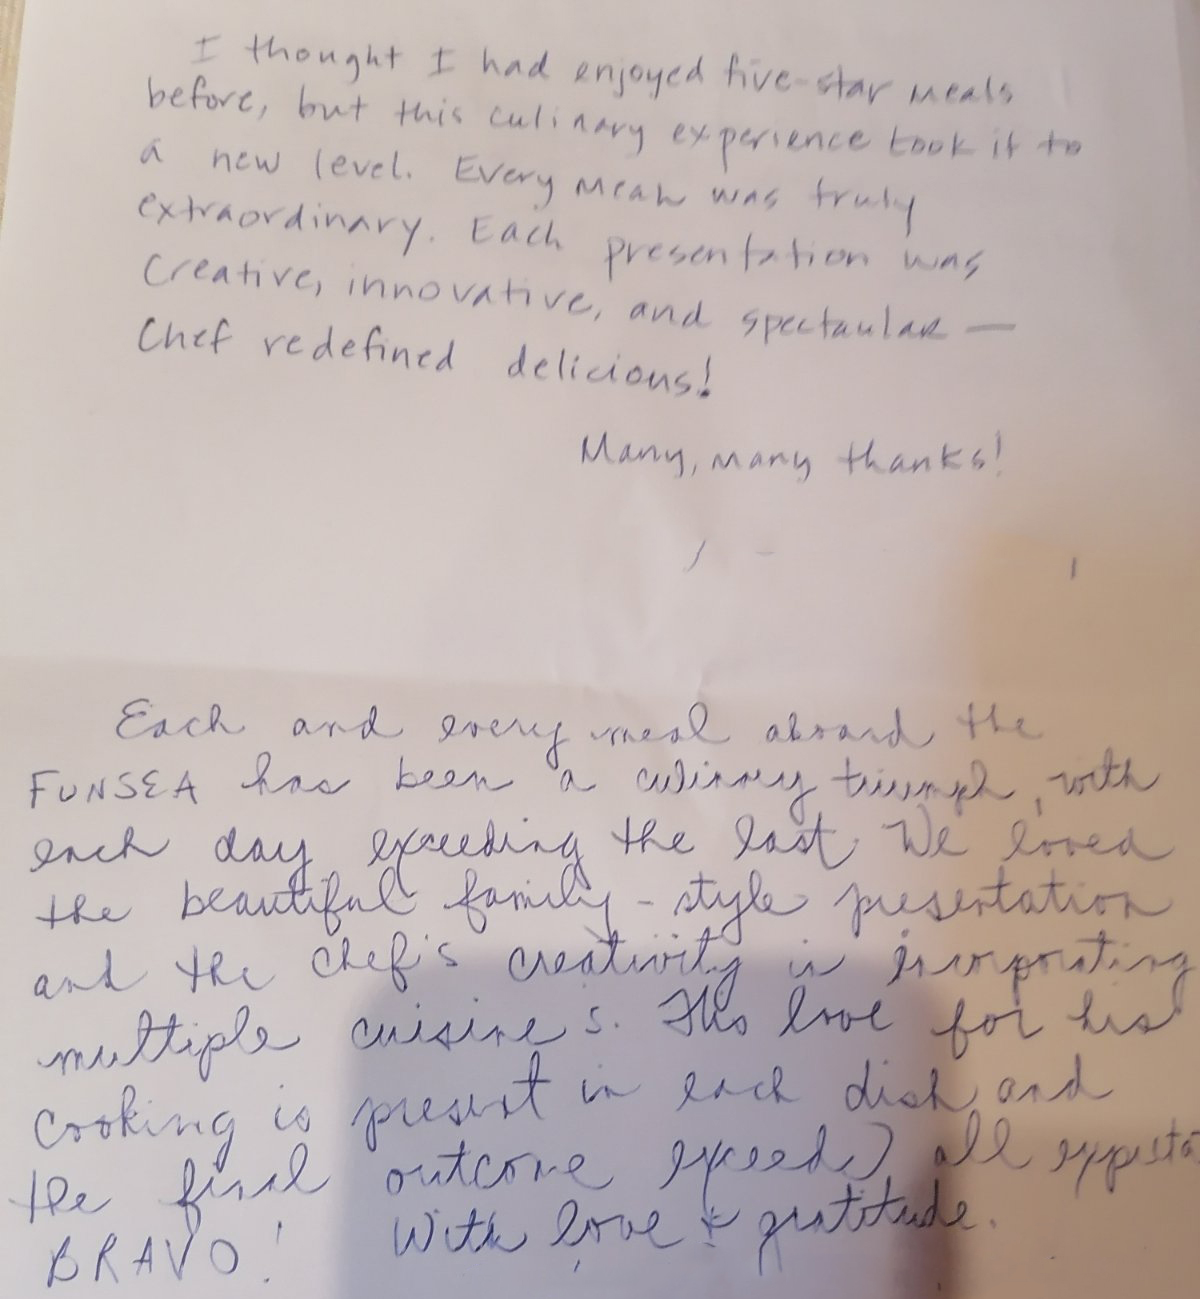 I thought I had enjoyed five-star meals
before, but this culinary experience took it to
a new level. Every meal was truly
extraordinary. Each presentation was
creative, innovative, and spectaular —
Chef redefined delicious!
Many, many thanks!
Each and every meal aboard the
FUNSEA has been a culinary triumph, with
each day exceeding the last. We loved
the beautiful family-style presentation
and the chef's creativity in incorporating
multiple cuisines. His love for his
cooking is present in each dish and
the final outcome exceeds all
BRAVO! With love & gratitude.